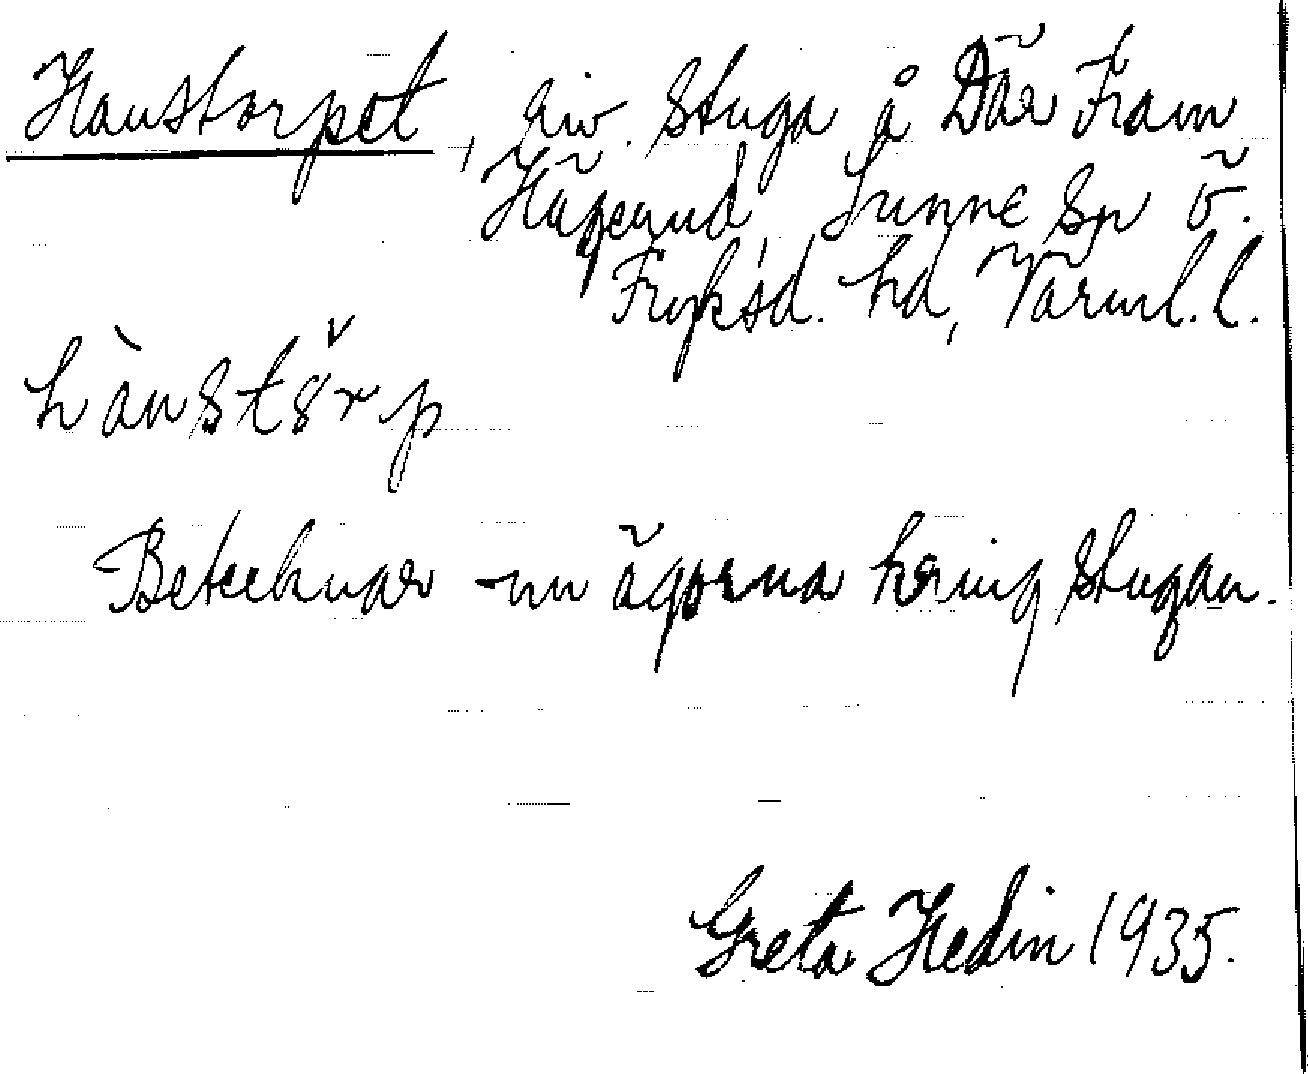 Hanstorpet, riv. stuga å Där Fram
Hägerud, Sunne sn Ö.
Fryksd. hd, Värml. l.
hànstǒrp
Betecknar nu ägorna kring stugan.
Greta Hedin 1935.